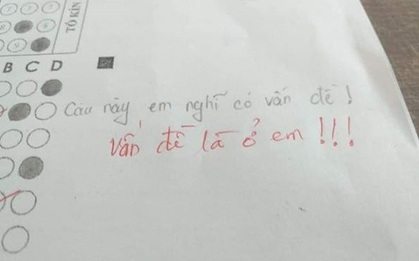 TÔ KÍN
B C D
Câu này em nghĩ có vấn đề!
Vấn đề là ở em!!!